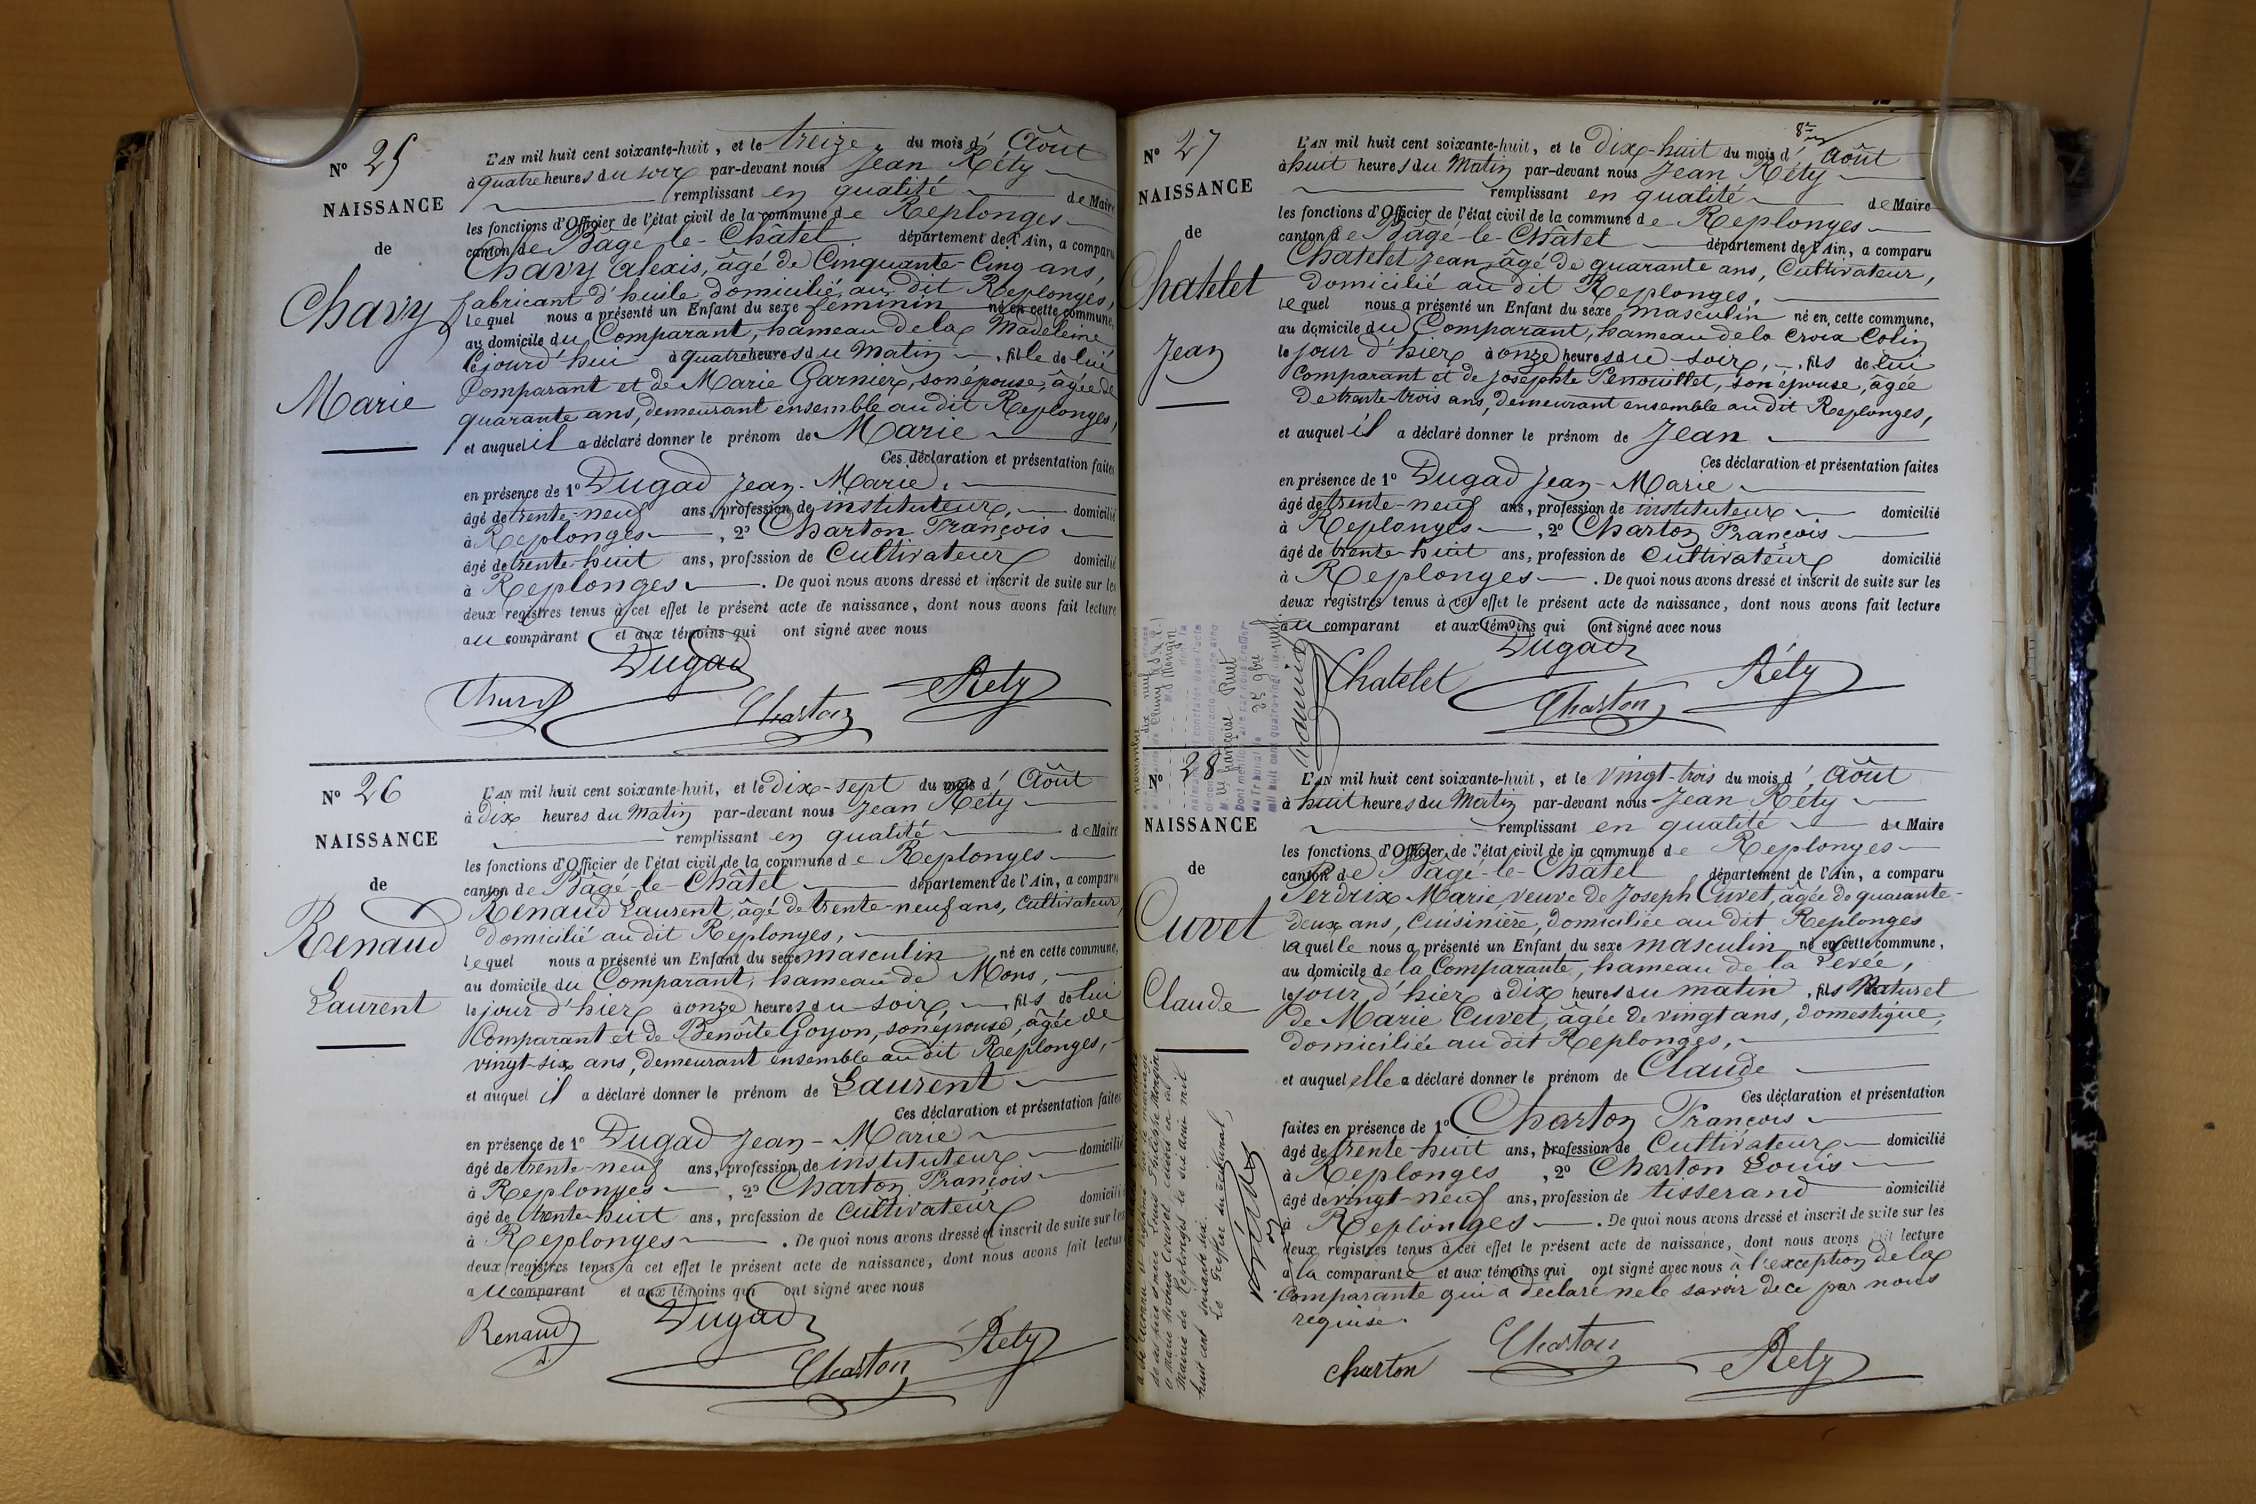 No 25
NAISSANCE
de
Chavy
Marie
L'AN mil huit cent soixante-huit, et le treize du mois d'Août
à quatre heures du soir par-devant nous Jean Réty
remplissant en qualité de Maire
les fonctions d'Officier de l'état civil de la commune de Replonges
canton de Bâgé-le-Châtel département de l'Ain, a comparu
Chavy Alexis, âgé de Cinquante-Cinq ans,
fabricant d'huile domicilié au dit Replonges,
lequel nous a présenté un Enfant du sexe féminin né en cette commune,
au domicile du Comparant, hameau de la Madeleine
cejourd'hui à quatre heures du Matin, fille de lui
Comparant et de Marie Garnier, son épouse, âgée de
quarante ans, demeurant ensemble au dit Replonges,
et auquel il a déclaré donner le prénom de Marie
Ces déclaration et présentation faites
en présence de 1o Dugad Jean-Marie,
âgé de trente-neuf ans, profession de instituteur, domicilié
à Replonges, 2o Charton François
âgé de trente-huit ans, profession de Cultivateur domicilié
à Replonges. De quoi nous avons dressé et inscrit de suite sur les
deux registres tenus à cet effet le présent acte de naissance, dont nous avons fait lecture
au comparant et aux témoins qui ont signé avec nous
Dugad
Charton
Réty
No 26
NAISSANCE
de
Renaud
Laurent
L'AN mil huit cent soixante-huit, et le dix-sept du mois d'Août
à dix heures du Matin par-devant nous Jean Réty
remplissant en qualité de Maire
les fonctions d'Officier de l'état civil de la commune de Replonges
canton de Bâgé-le-Châtel département de l'Ain, a comparu
Renaud Laurent, âgé de trente-neuf ans, Cultivateur,
domicilié au dit Replonges,
lequel nous a présenté un Enfant du sexe masculin né en cette commune,
au domicile du Comparant, hameau de Mons,
le jour d'hier à onze heures du soir, fils de lui
Comparant et de Benoîte Goyon, son épouse, âgée de
vingt-six ans, demeurant ensemble au dit Replonges,
et auquel il a déclaré donner le prénom de Laurent
Ces déclaration et présentation faites
en présence de 1o Dugad Jean-Marie
âgé de trente-neuf ans, profession de instituteur domicilié
à Replonges, 2o Charton François
âgé de trente-huit ans, profession de Cultivateur domicilié
à Replonges. De quoi nous avons dressé et inscrit de suite sur les
deux registres tenus à cet effet le présent acte de naissance, dont nous avons fait lecture
au comparant et aux témoins qui ont signé avec nous
Renaud
Dugad
Charton
Réty
No 27
NAISSANCE
de
Chatelet
Jean
L'AN mil huit cent soixante-huit, et le Dix-huit du mois d'Août
à huit heures du Matin par-devant nous Jean Réty
remplissant en qualité de Maire
les fonctions d'Officier de l'état civil de la commune de Replonges
canton de Bâgé-le-Châtel département de l'Ain, a comparu
Chatelet Jean, âgé de quarante ans, Cultivateur,
domicilié au dit Replonges,
lequel nous a présenté un Enfant du sexe masculin né en cette commune,
au domicile du Comparant, hameau de la Croix Colin
le jour d'hier à onze heures du soir, fils de lui
Comparant et de Josephte Penouillet, son épouse, âgée
de trente-trois ans, demeurant ensemble au dit Replonges,
et auquel il a déclaré donner le prénom de Jean
Ces déclaration et présentation faites
en présence de 1o Dugad Jean-Marie
âgé de trente-neuf ans, profession de instituteur domicilié
à Replonges, 2o Charton François
âgé de trente-huit ans, profession de Cultivateur domicilié
à Replonges. De quoi nous avons dressé et inscrit de suite sur les
deux registres tenus à cet effet le présent acte de naissance, dont nous avons fait lecture
au comparant et aux témoins qui ont signé avec nous
Dugad
Chatelet
Charton
Réty
No 28
NAISSANCE
de
Cuvet
Claude
L'AN mil huit cent soixante-huit, et le vingt-trois du mois d'Août
à huit heures du Matin par-devant nous Jean Réty
remplissant en qualité de Maire
les fonctions d'Officier de l'état civil de la commune de Replonges
canton de Bâgé-le-Châtel département de l'Ain, a comparu
Perdrix Marie, veuve de Joseph Cuvet, âgée de quarante-
deux ans, Cuisinière, domiciliée au dit Replonges
laquelle nous a présenté un Enfant du sexe masculin né en cette commune,
au domicile de la Comparante, hameau de la Levée,
le jour d'hier à dix heures du matin, fils Naturel
de Marie Cuvet, âgée de vingt ans, domestique,
domiciliée au dit Replonges,
et auquel elle a déclaré donner le prénom de Claude
Ces déclaration et présentation
faites en présence de 1o Charton François
âgé de trente-huit ans, profession de Cultivateur domicilié
à Replonges, 2o Charton Louis
âgé de vingt-neuf ans, profession de tisserand domicilié
à Replonges. De quoi nous avons dressé et inscrit de suite sur les
deux registres tenus à cet effet le présent acte de naissance, dont nous avons fait lecture
à la comparante et aux témoins qui ont signé avec nous à l'exception de la
Comparante qui a déclaré ne le savoir de ce par nous
requise.
Charton
Charton
Réty
Mairie de Replonges le six août mil
huit cent soixante
Le Greffier du Tribunal,